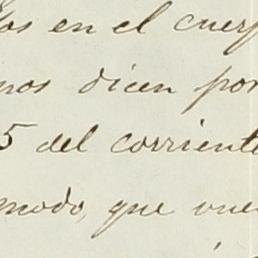 os en el cuerp
nos dicen por
5 del corriente
modo, que vue